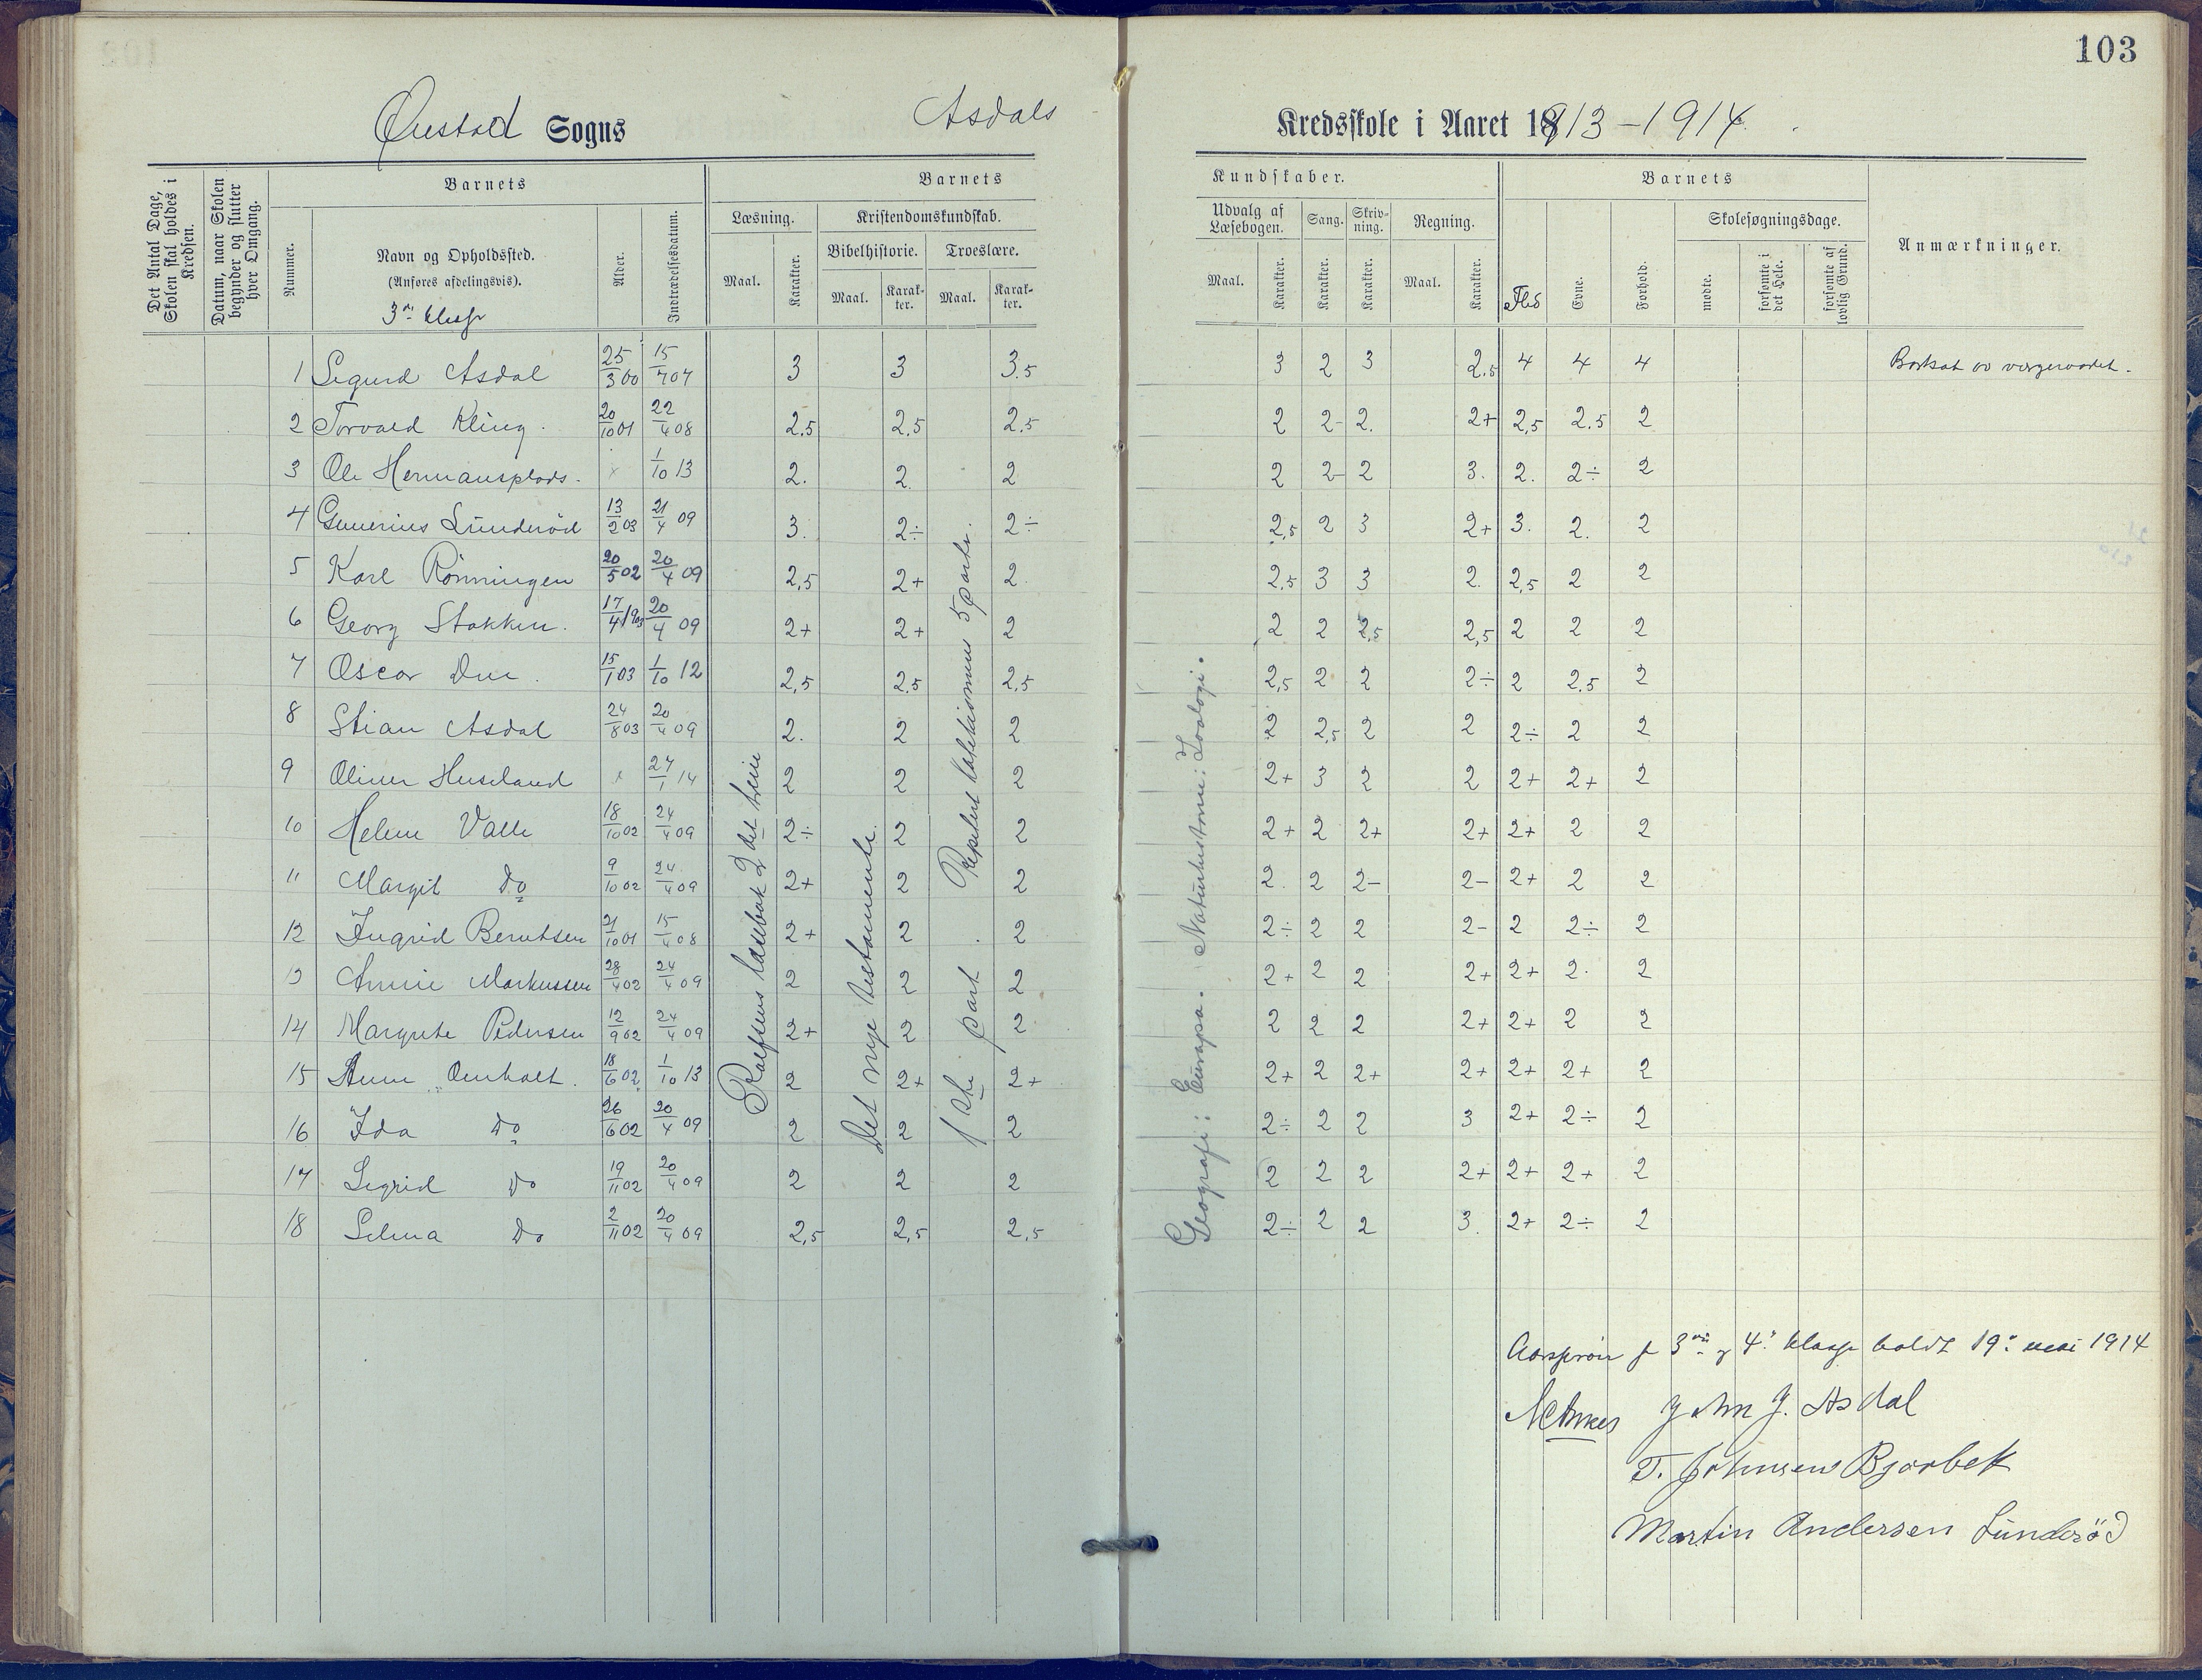 103
Øiestad Sogns
Asdals Kredsskole i Aaret 1913-1914.
Det Antal Dage, Skolen skal holdes i Kredsen.
Datum, naar Skolen begynder og slutter hver Omgang.
Barnets
Nummer.
Navn og Opholdssted.
(Anføres afdelingsvis).
Alder.
Indtrædelsesdatum.
Barnets Kundskaber.
Læsning.
Maal. Karakter.
Kristendomskundskab.
Bibelhistorie. Troeslære.
Maal. Karakter. Maal. Karakter.
Udvalg af Læsebogen.
Maal. Karakter.
Sang. Karakter.
Skrivning. Karakter.
Regning.
Maal. Karakter.
Barnets
Flid Evne. Forhold.
Skolesøgningsdage.
mødte. forsømte i det Hele. forsømte af lovlig Grund.
Anmærkninger.
1 Sigurd Asdal 25/3 00 15/7 07 3 3 3.5 3 2 3 2,5 4 4 4 Bortsat av vergeraadet.
2 Torvald Kling. 20/10 01 22/4 08 2,5 2,5 2,5 2 2- 2. 2+ 2,5 2.5 2
3 Ole Hermansplads. x 1/10 13 2. 2. 2 2 2- 2 3. 2. 2÷ 2
4 Gunerius Lunderöd 13/2 03 21/4 09 3. 2÷ 2÷ 2,5 2 3 2+ 3. 2. 2
5 Karl Rönningen 20/5 02 20/4 09 2,5 2+ 2. 2,5 3 3 2. 2,5 2 2
6 Georg Stokken. 17/4 1903 20/4 09 2+ 2+ 2 2 2 2,5 2,5 2 2 2
7 Oscar Due. 15/1 03 1/10 12 2,5 2,5 2,5 2,5 2 2 2÷ 2 2.5 2
8 Stian Asdal 24/8 03 20/4 09 2. 2 2 2 2,5 2 2 2÷ 2 2
9 Oliver Huseland x 27/1 14 2 2 2 2+ 3 2 2 2+ 2+ 2
10 Helene Valle 18/10 02 24/4 09 2÷ 2 2 2+ 2 2+ 2+ 2+ 2 2
11 Margit Do 9/10 02 24/4 09 2+ 2 2 2. 2 2- 2- 2+ 2 2
12 Ingrid Berntsen 21/10 01 15/4 08 2+ 2 2 2÷ 2 2 2- 2 2÷ 2
13 Annie Markussen 28/4 02 24/4 09 2 2 2 2+ 2 2 2+ 2+ 2. 2
14 Margrete Pedersen 12/9 02 24/4 09 2+ 2 2 2 2 2 2+ 2+ 2 2
15 Anne Omholt. 18/6 02 1/10 13 2 2+ 2+ 2+ 2 2+ 2+ 2+ 2+ 2
16 Ida Do 26/6 02 20/4 09 2 2 2 2÷ 2 2 3 2+ 2÷ 2
17 Sigrid Do 19/11 02 20/4 09 2 2 2 2 2 2 2+ 2+ 2+ 2
18 Selma Do 2/11 02 20/4 09 2,5 2,5 2,5 2÷ 2 2 3. 2+ 2÷ 2
3die klasse
Rolfsens læsebok 2det trin
Det nye testamente.
1ste part
Repetert katekismus 5 parter.
Geografi: Europa. Naturhistorie: Zoologi.
Aarsprøve for 3die og 4de klasse holdt 19de mai 1914
John J. Asdal
T. Johnsen Bjorbek
Martin Andersen Lunderöd